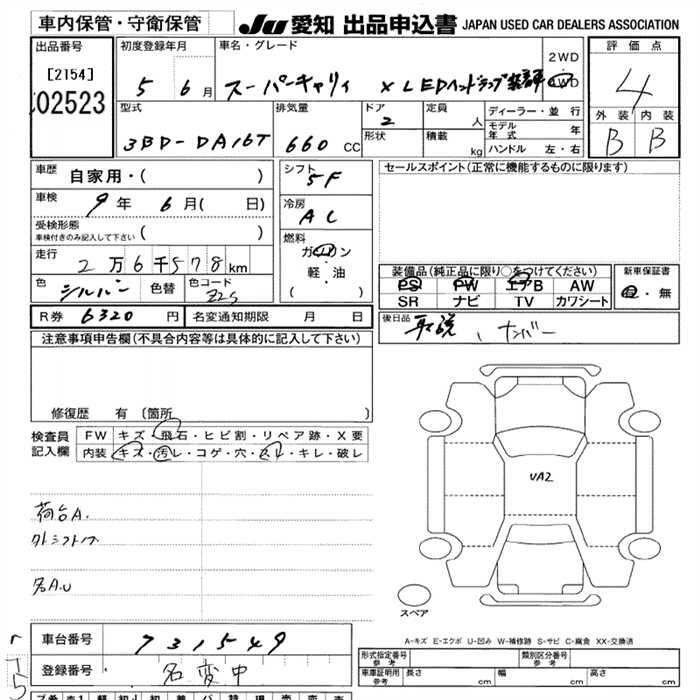 車内保管・守衛保管
JU 愛知 出品申込書 JAPAN USED CAR DEALERS ASSOCIATION
出品番号
[2154]
02523
初度登録年月
5 6 月
車名・グレード
スーパーキャリィ X LEDヘッドランプ装着
2WD
4WD
評価点
4
外装 内装
B B
型式
3BD-DA16T
排気量
660 CC
ドア
2
形状
定員 人
積載 kg
ディーラー・並行
モデル年式 年
ハンドル 左・右
車歴
自家用・( )
車検
9 年 6 月( 日)
受検形態
車検付きのみ記入して下さい ( )
走行
2万6千578 km
色 シルバー 色替 色コード Z2S
シフト
5F
冷房
AC
燃料
ガソリン
・
軽・油
( )
R券 6320 円 名変通知期限 月 日
セールスポイント(正常に機能するものに限ります)
装備品(純正品に限り○をつけてください)
PS PW エアB AW
SR ナビ TV カワシート
新車保証書
有・無
後日品 取説、ナンバー
注意事項申告欄(不具合内容等は具体的に記入して下さい)
修復歴 有 〔箇所
検査員
記入欄
FW キズ・飛石・ヒビ割・リペア跡・X要
内装 キズ・汚レ・コゲ・穴・スレ・キレ・破レ
荷台A.
名A.U
UA2
スペア
A-キズ E-エクボ U-凹み W-補修跡 S-サビ C-腐食 XX-交換済
車台番号 731549
登録番号 名変中
形式指定番号
参考
類別区分番号
参考
車庫証明用
参考
長さ cm 幅 cm 高さ cm